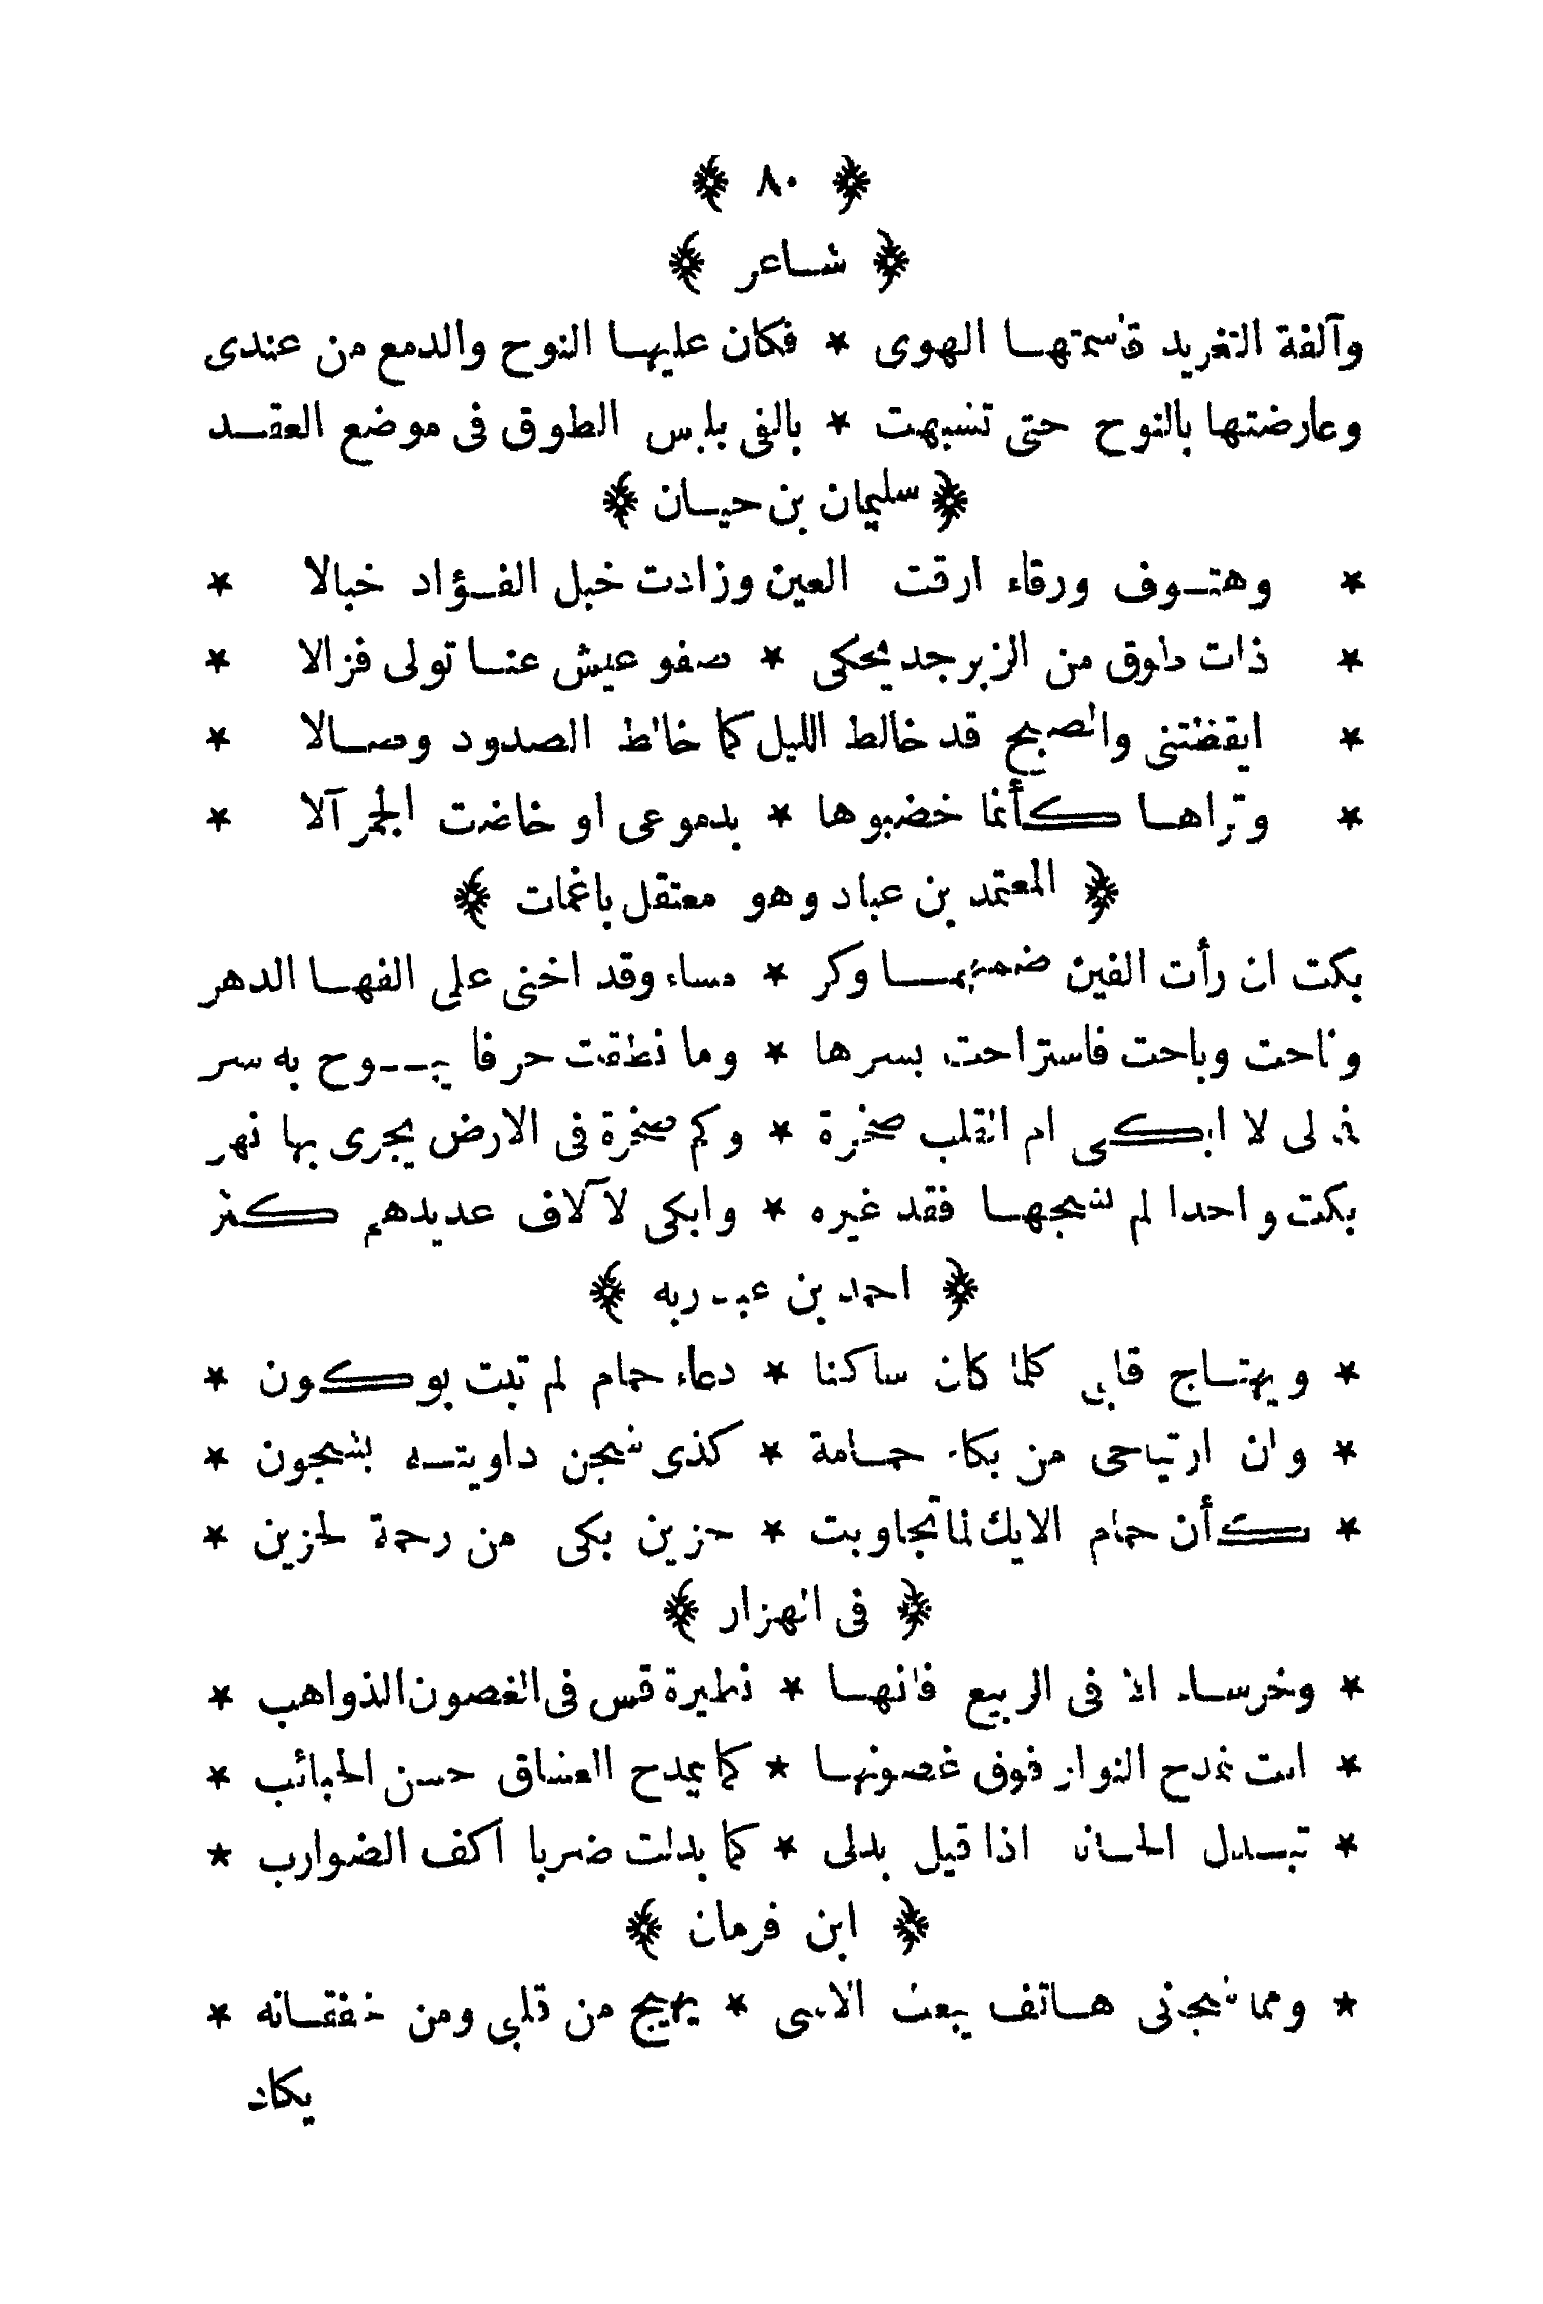 ﴿ ٨٠ ﴾
﴿ شاعر ﴾
وآلفة التغريد قاسمتها الهوى * فكان عليها النوح والدمع من عندى
وعارضتها بالنوح حتى تشبهت * بالفى بلبس الطوق فى موضع العقد
﴿ سليمان بن حيان ﴾
* وهتوف ورقاء ارقت العين وزادت خبل الفؤاد خبالا *
* ذات طوق من الزبرجد يحكى * صفو عيش عنا تولى فزالا *
* ايقظتنى والصبح قد خالط الليل كما خالط الصدود وصالا *
* وتراها كأنما خضبوها * بدموعى او خاضت الجمر آلا *
﴿ المعتمد بن عباد وهو معتقل باغمات ﴾
بكت ان رأت الفين ضمهما وكر * مساء وقد اخنى على الفها الدهر
وناحت وباحت فاستراحت بسرها * وما نطقت حرفا يبوح به سر
فما لى لا ابكى ام القلب صخرة * وكم صخرة فى الارض يجرى بها نهر
بكت واحدا لم يشجها فقد غيره * وابكى لآلاف عديدهم كثر
﴿ احمد بن عبد ربه ﴾
* ويهتاج قلبى كلما كان ساكنا * دعاء حمام لم تبت بوكون *
* وان ارتياحى من بكاء حمامة * كذى شجن داويته بشجون *
* كأن حمام الايك لما تجاوبت * حزين بكى من رحمة لحزين *
﴿ فى الهزار ﴾
* وخرساء الا فى الربيع فانها * نظيرة قس فى الغصون الذواهب *
* اتت تمدح النوار فوق غصونها * كما يمدح العشاق حسن الحبائب *
* تبدل الحانا اذا قيل بدلى * كما بدلت ضربا اكف الضوارب *
﴿ ابن فرمان ﴾
* ومما شجانى هاتف يبعث الاسى * يهيج من قلبى ومن خفقانه *
يكاد